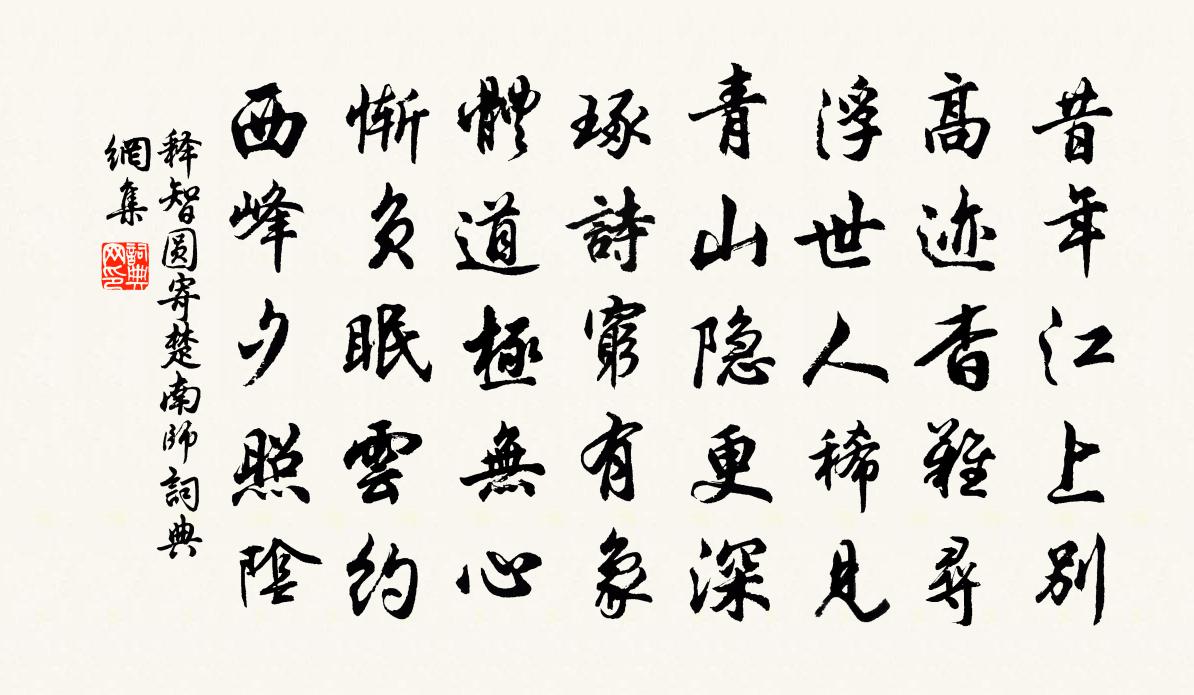 昔年江上別
高迹杳難尋
浮世人稀見
青山隐更深
琢詩窮有象
體道極無心
慚負眠雲約
西峰夕照陰
释智圆寄楚南師詞典
網集
詞典
网印